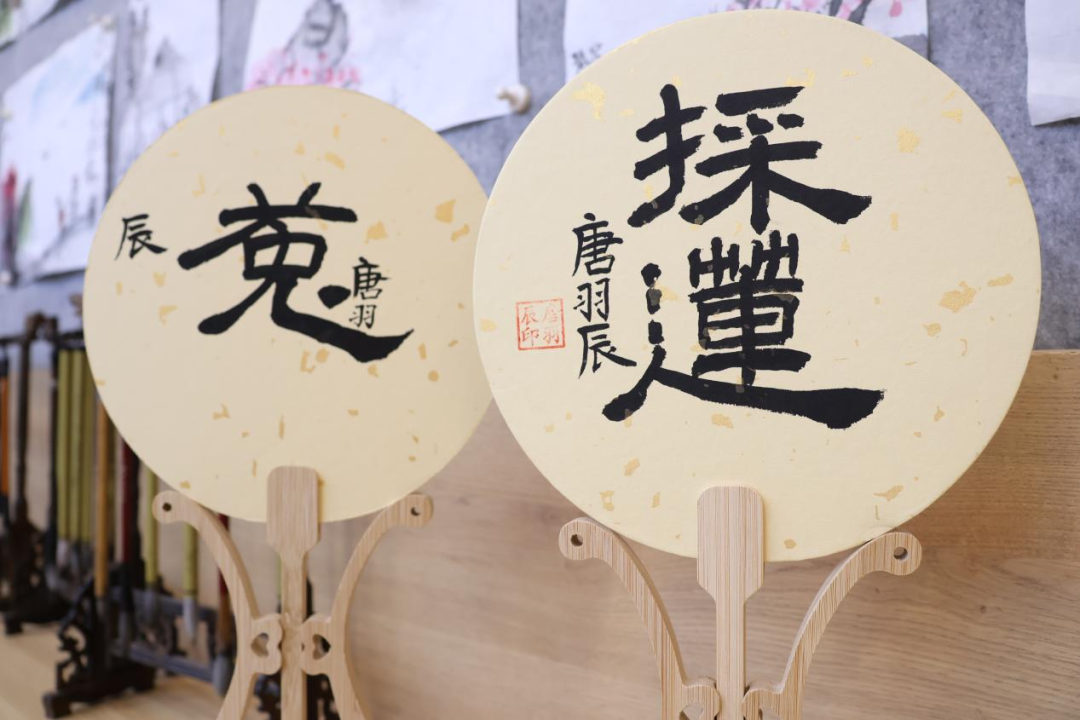 採蓮
唐羽辰
唐羽
辰印
菟
唐羽
辰